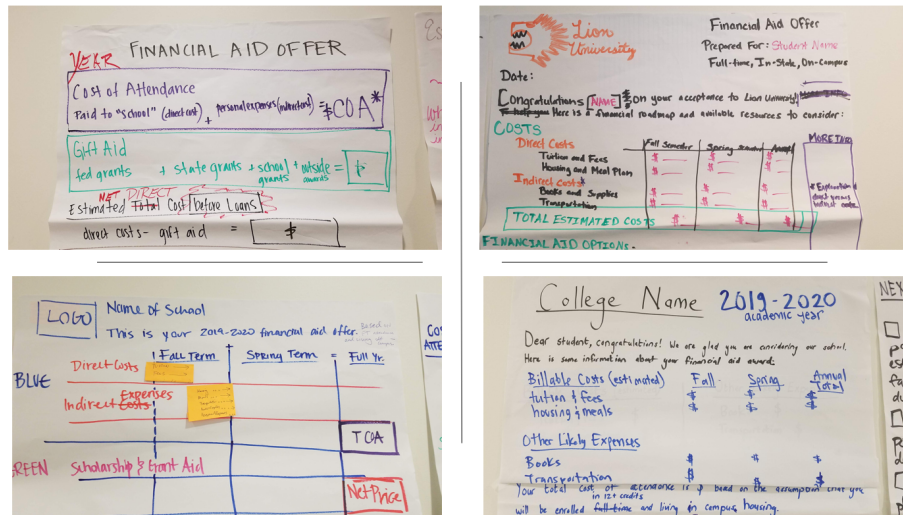 YEAR FINANCIAL AID OFFER
Cost of Attendance
Paid to "school" (direct cost) + personal expenses (indirect cost) = $COA*
Gift Aid
fed grants + state grants + school grants + outside awards = $
Estimated Total NET DIRECT Cost before Loans
direct costs - gift aid = $
Lion University
Financial Aid Offer
Prepared For: Student Name
Full-time, In-State, On-Campus
Date:
Congratulations [NAME] on your acceptance to Lion University!
Here is a financial roadmap and available resources to consider:
COSTS
MORE INFO
Direct Costs Fall Semester Spring Annual
Tuition and Fees $ $ $
Housing and Meal Plan $ $ $
Indirect Costs*
Books and Supplies $ $ $
Transportation $ $ $
TOTAL ESTIMATED COSTS $ $ $
FINANCIAL AID OPTIONS-
LOGO
Name of School
This is your 2019-2020 financial aid offer. Based on
FALL TERM + SPRING TERM = Full Yr.
BLUE
Direct Costs
Indirect Costs Expenses
TCOA
GREEN
Scholarship & Grant Aid
Net Price
College Name 2019-2020
academic year
Dear student, congratulations! We are glad you are considering our school.
Here is some information about your financial aid award:
Billable Costs (estimated) Fall Spring Annual Total
tuition & fees $ $ $
housing & meals $ $ $
Other Likely Expenses
Books $ $ $
Transportation $ $ $
Your total cost of attendance is $ based on the assumption that you
will be enrolled full-time in 12+ credits and living in campus housing.